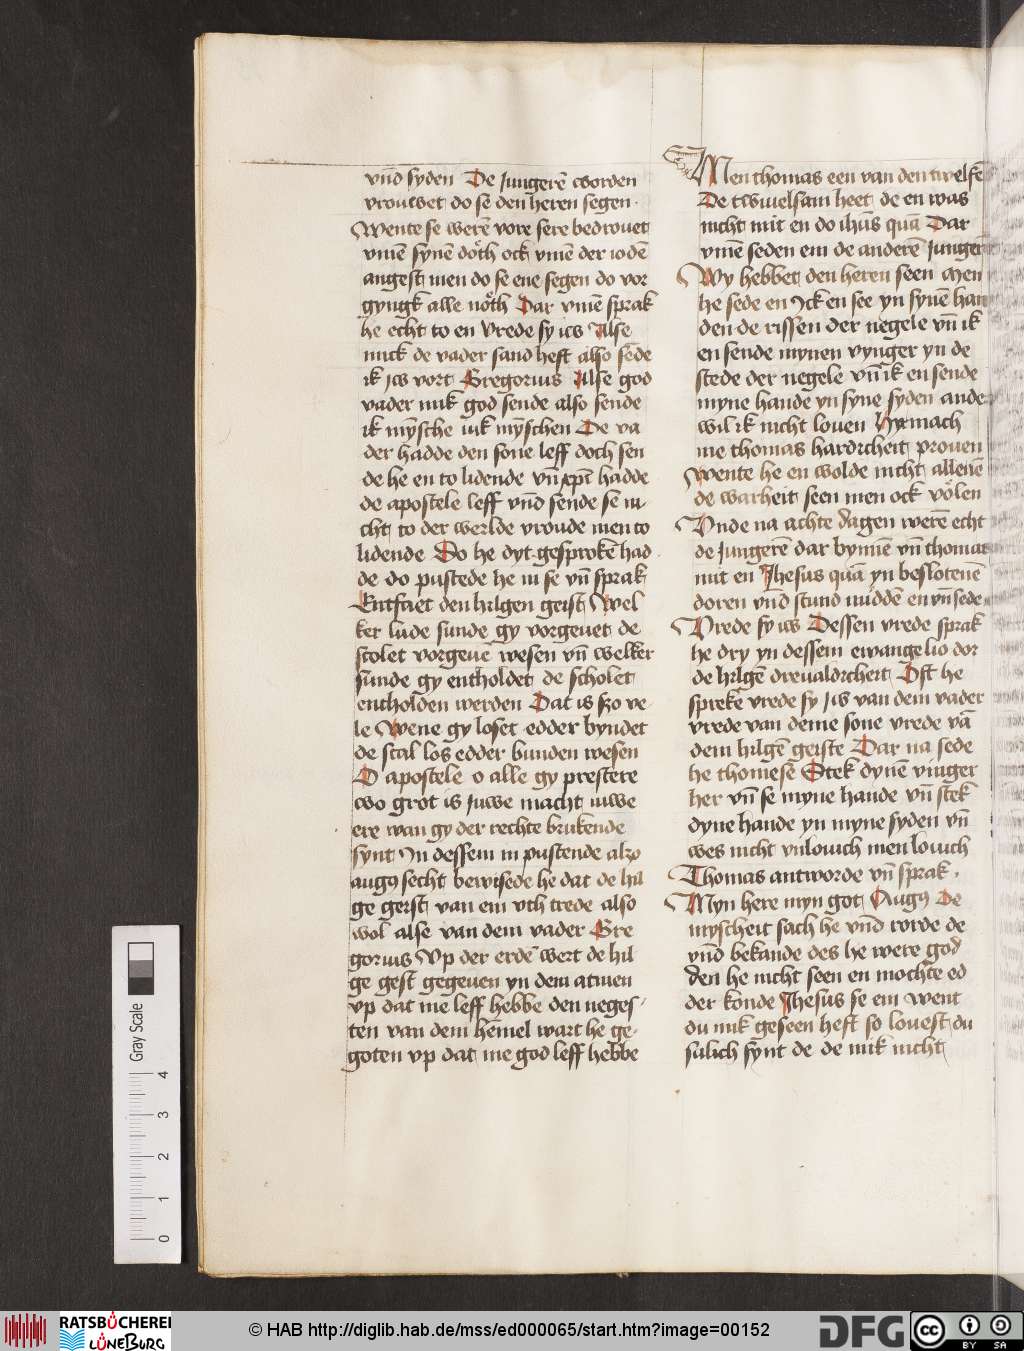 vnd syden De Jungerē worden
vrouwet do sē den heren segen
Wente se werē vore sere bedrouet
vmē synē doͤth ock vmē der iodē
angest men do se ene segen do vor
gyngk alle noͤth Dar vmē sprak
he echt to en Vrede sy iw Alse
mick de vader sand heft also sēde
ik iw vort Gregorius Alse god
vader mik god sende also sende
ik mȳsche iuk mȳschen De va
der hadde den sone leff doch sen
de he en to lidende vn̄ xpī hadde
de apostele leff vnd sende sē ni
cht to der werlde vroude men to
lidende Do he dyt gesprokē had
de do pustede he in se vn̄ sprak
Entfaet den hilgen geist Wel
ker lude sunde gy vorgeuet de
scolet vorgeue wesen vn̄ welker
sunde gy entholdet de scholet
entholden werden Dat is szo ve
le Wene gy loset edder byndet
de scal los edder bunden wesen
O apostele o alle gy prestere
wo grot is Juwe macht iuwe
ere wan gy der rechte brukende
synt In dessem in pustende alzo
augꝰ secht bewisede he dat de hil
ge geist van em vth trede also
wol alse van dem vader Gre
gorius Vp der erdē wert de hil
ge gest gegeuen yn dem atmen
vp dat me leff hebbe den neges
ten van dem hēmel wart he ge
goten vp dat me god leff hebbe
Men thomas een van den twelfē
De twiuelsam heet de en was
nicht mit en do ihūs quā Dar
vmē seden em de anderē Junger
Wy hebbet den heren seen Men
he sede en Ick en see yn synē han
den de rissen der negele vn̄ ik
en sende mynen vynger yn de
stede der negele vn̄ ik en sende
myne hande yn syne syden ande
wil ik nicht louen Hyr mach
me thomas hardicheit prouen
Wente he en wolde nicht allenē
de warheit seen men ock voͤlen
Unde na achte dagen werē echt
de Jungerē dar bynnē vn̄ thomas
mit en Jhesus quā yn beslotenē
doren vnd stund middē en vn̄ sede
Vrede sy iw Dessen vrede sprak
he dry yn dessem ewangelio dor
de hilgē dreualdicheit Oft he
sprekē vrede sy Jw van dem vader
vrede van deme sone vrede vā
dem hilgē geiste Dar na sede
he thomesē Stek dynē vinger
her vn̄ se myne hande vn̄ stek
dyne hande yn myne syden vn̄
wes nicht vnlouich men louich
Thomas antworde vn̄ sprak
Myn here myn got Augꝰ De
mynscheit sach he vnd rorde de
vnd bekande des he were god
den he nicht seen en mochte ed
der konde Jhesus se em Went
du mik geseen hefst so louest du
sulich synt de de mik nicht
Gray Scale
4
3
2
1
0
RATSBÜCHEREI
LÜNEBURG
© HAB http://diglib.hab.de/mss/ed000065/start.htm?image=00152
DFG
cc
BY SA